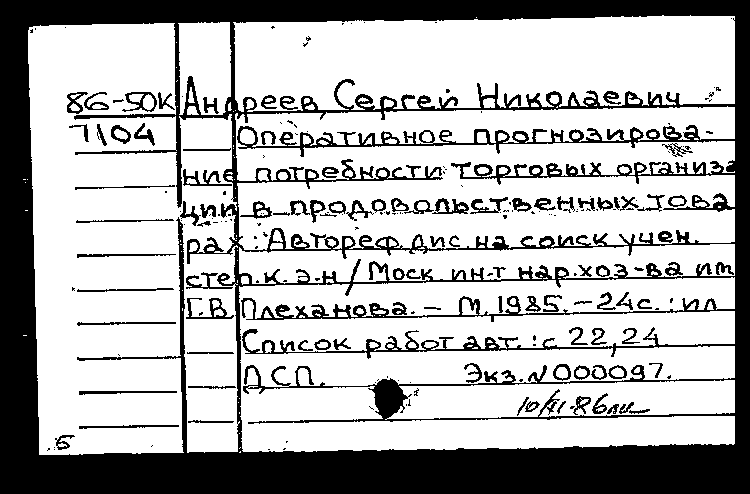 86-50К Андреев, Сергей Николаевич
7104 Оперативное прогнозирова-
ние потребности торговых организа
ций в продовольственных това
рах: Автореф. дис. на соиск учен.
степ. к. э. н / Моск ин-т нар. хоз-ва им
Г.В. Плеханова. - М, 1985. - 24 с. : ил
Список работ авт. : с 22, 24
ДСП. Экз. N 000097.
Б